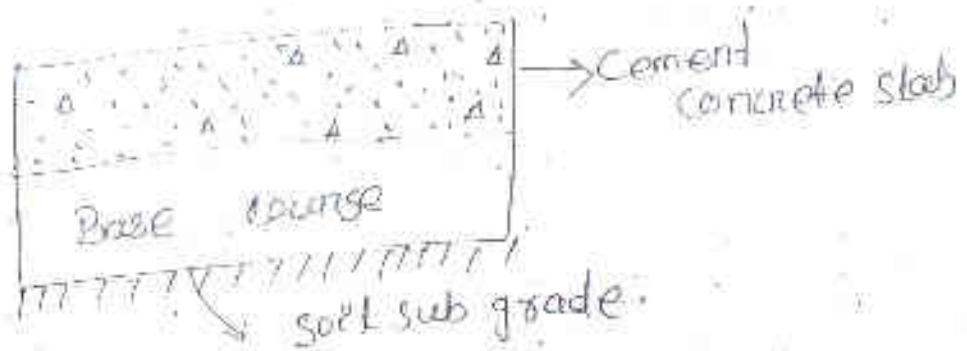 Cement
concrete slab
Base course
soil sub grade.